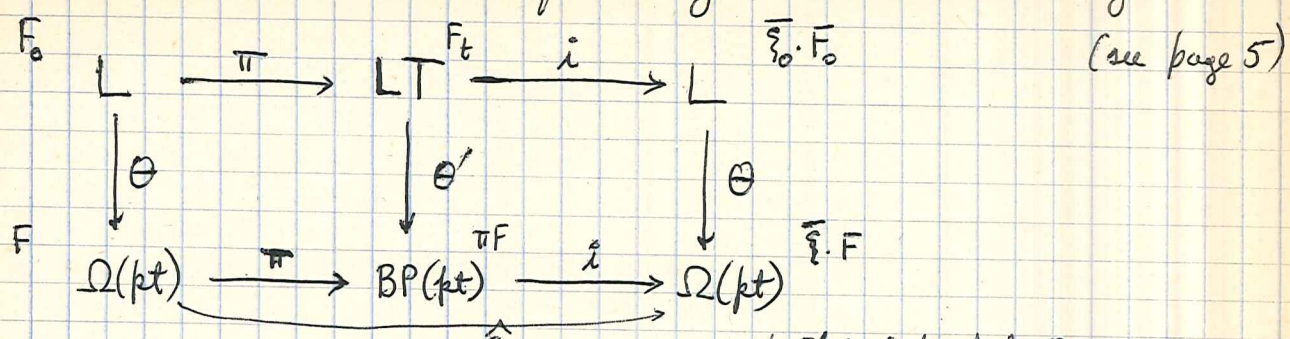 F₀ L π LT F_t i L ξ̄₀·F̄₀ (see page 5)
θ θ′ θ
F Ω(pt) π BP(pt) πF i Ω(pt) ξ̄·F